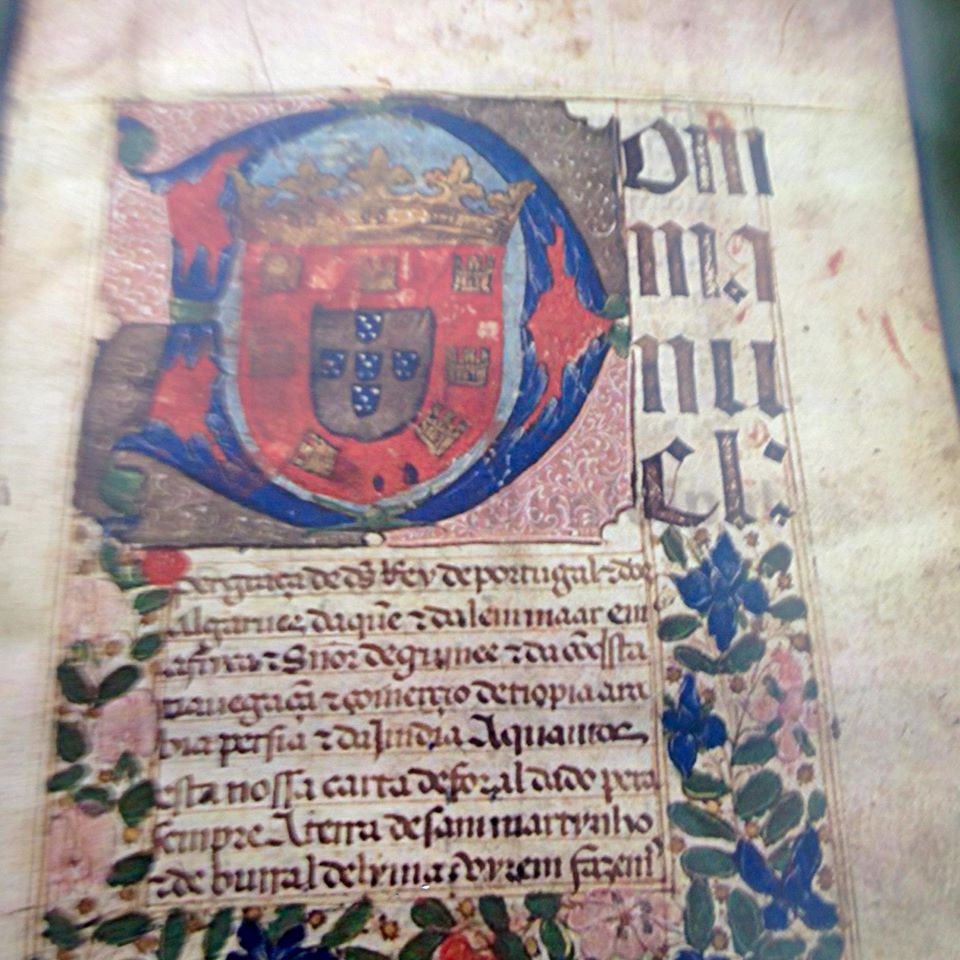 Dom
ma
nu
el:
Per graça de ds Rey de portugal z dos
algarues daque z dalem maar em
africa z Snor de guinee z da coqsta
nauegaçã z comerçio detiopia ara
bia persia z da Jndia A quantos
esta nossa carta de foral dado pera
sempre A terra de sam martynho
z de burral de lyma vyrem fazem